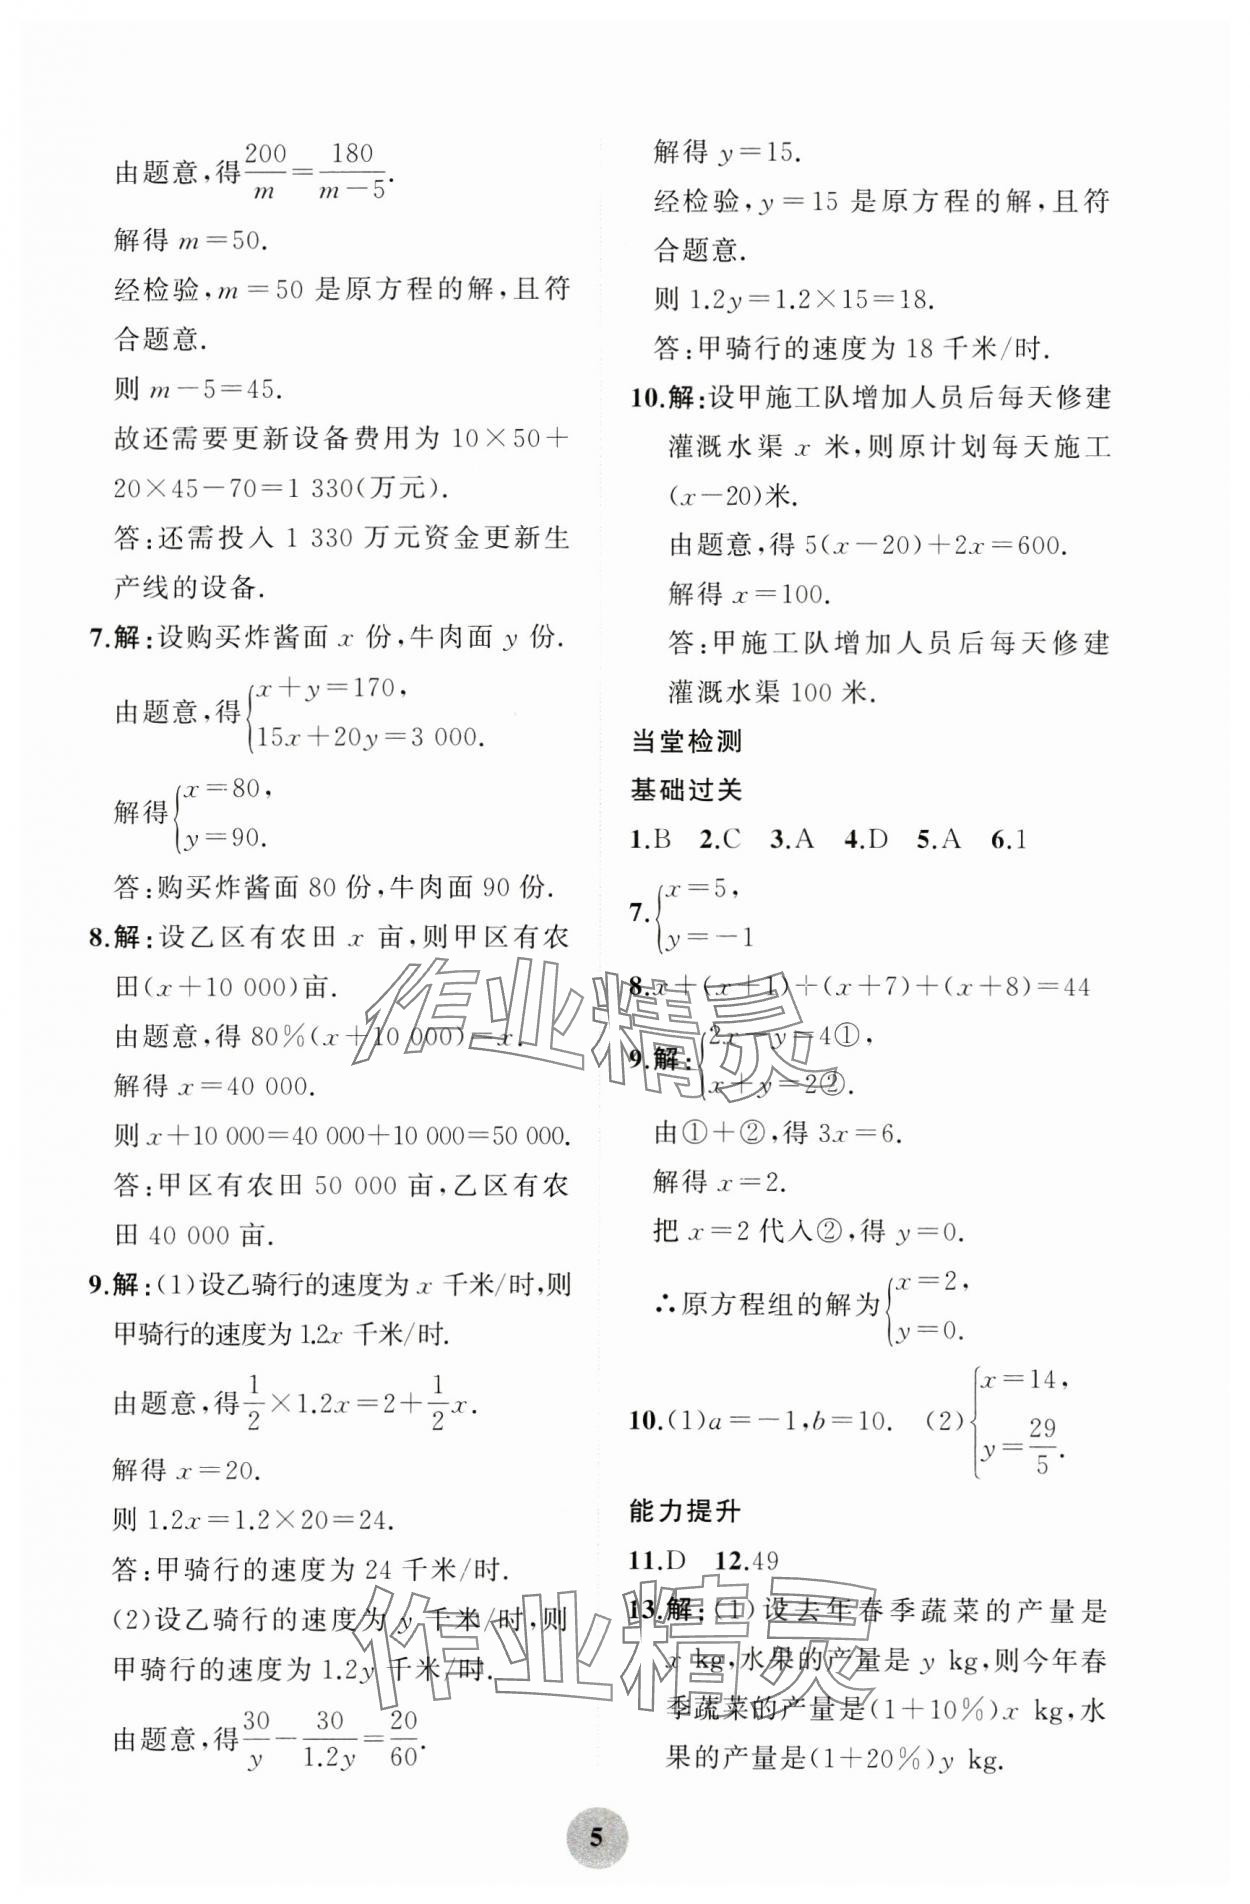 由题意,得200/m=180/(m-5).
解得 m=50.
经检验,m=50 是原方程的解,且符
合题意.
则 m-5=45.
故还需要更新设备费用为 10×50+
20×45-70=1 330(万元).
答:还需投入 1 330 万元资金更新生
产线的设备.
7.解:设购买炸酱面 x 份,牛肉面 y 份.
由题意,得{x+y=170,
15x+20y=3 000.
解得{x=80,
y=90.
答:购买炸酱面 80 份,牛肉面 90 份.
8.解:设乙区有农田 x 亩,则甲区有农
田(x+10 000)亩.
由题意,得 80%(x+10 000)=x.
解得 x=40 000.
则 x+10 000=40 000+10 000=50 000.
答:甲区有农田 50 000 亩,乙区有农
田 40 000 亩.
9.解:(1)设乙骑行的速度为 x 千米/时,则
甲骑行的速度为 1.2x 千米/时.
由题意,得1/2×1.2x=2+1/2x.
解得 x=20.
则 1.2x=1.2×20=24.
答:甲骑行的速度为 24 千米/时.
(2)设乙骑行的速度为 y 千米/时,则
甲骑行的速度为 1.2y 千米/时.
由题意,得30/y-30/1.2y=20/60.
解得 y=15.
经检验,y=15 是原方程的解,且符
合题意.
则 1.2y=1.2×15=18.
答:甲骑行的速度为 18 千米/时.
10.解:设甲施工队增加人员后每天修建
灌溉水渠 x 米,则原计划每天施工
(x-20)米.
由题意,得 5(x-20)+2x=600.
解得 x=100.
答:甲施工队增加人员后每天修建
灌溉水渠 100 米.
当堂检测
基础过关
1.B 2.C 3.A 4.D 5.A 6.1
7.{x=5,
y=-1
8.x+(x+1)+(x+7)+(x+8)=44
9.解:{2x-y=4①,
x+y=2②.
由①+②,得 3x=6.
解得 x=2.
把 x=2 代入②,得 y=0.
∴原方程组的解为{x=2,
y=0.
10.(1)a=-1,b=10. (2){x=14,
y=29/5.
能力提升
11.D 12.49
13.解:(1)设去年春季蔬菜的产量是
x kg,水果的产量是 y kg,则今年春
季蔬菜的产量是(1+10%)x kg,水
果的产量是(1+20%)y kg.
作业精灵
作业精灵
5